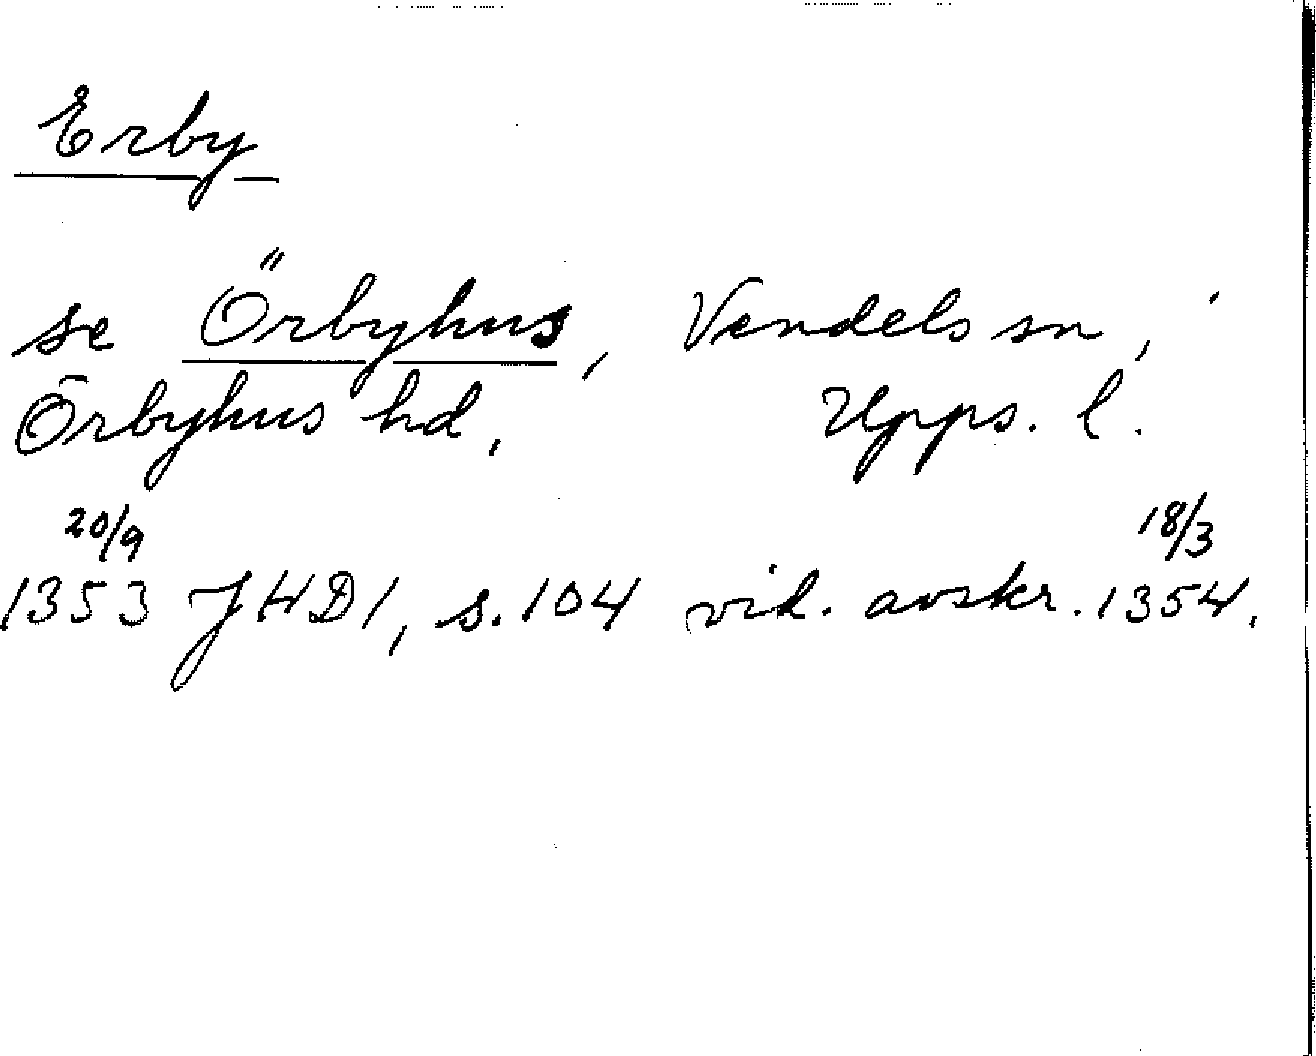 Erby
se Örbyhus, Vendels sn,
Örbyhus hd, Upps. l.
20/9 18/3
1353 JHD1, s.104 vid. avskr. 1354.